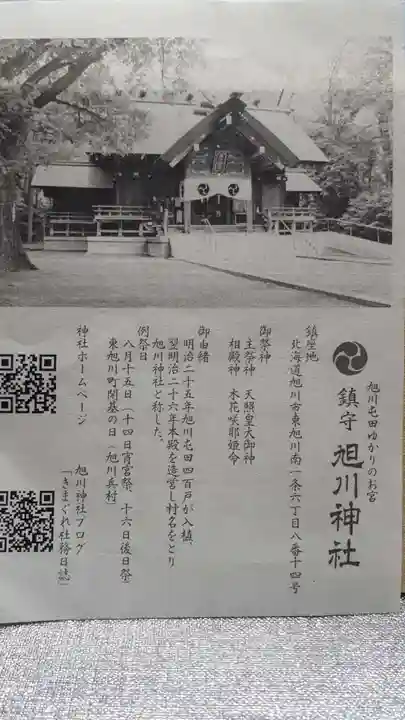 旭川屯田ゆかりのお宮
鎮守 旭川神社
鎮座地
北海道旭川市東旭川南一条六丁目八番十四号
御祭神
主祭神 天照皇大御神
相殿神 木花咲耶姫命
御由緒
明治二十五年旭川屯田四百戸が入植、
翌明治二十六年本殿を造営し村名をとり
旭川神社と称した。
例祭日
八月十五日(十四日宵宮祭、十六日後日祭)
東旭川町開基の日(旭川兵村)
神社ホームページ
旭川神社ブログ
「きまぐれ社務日誌」